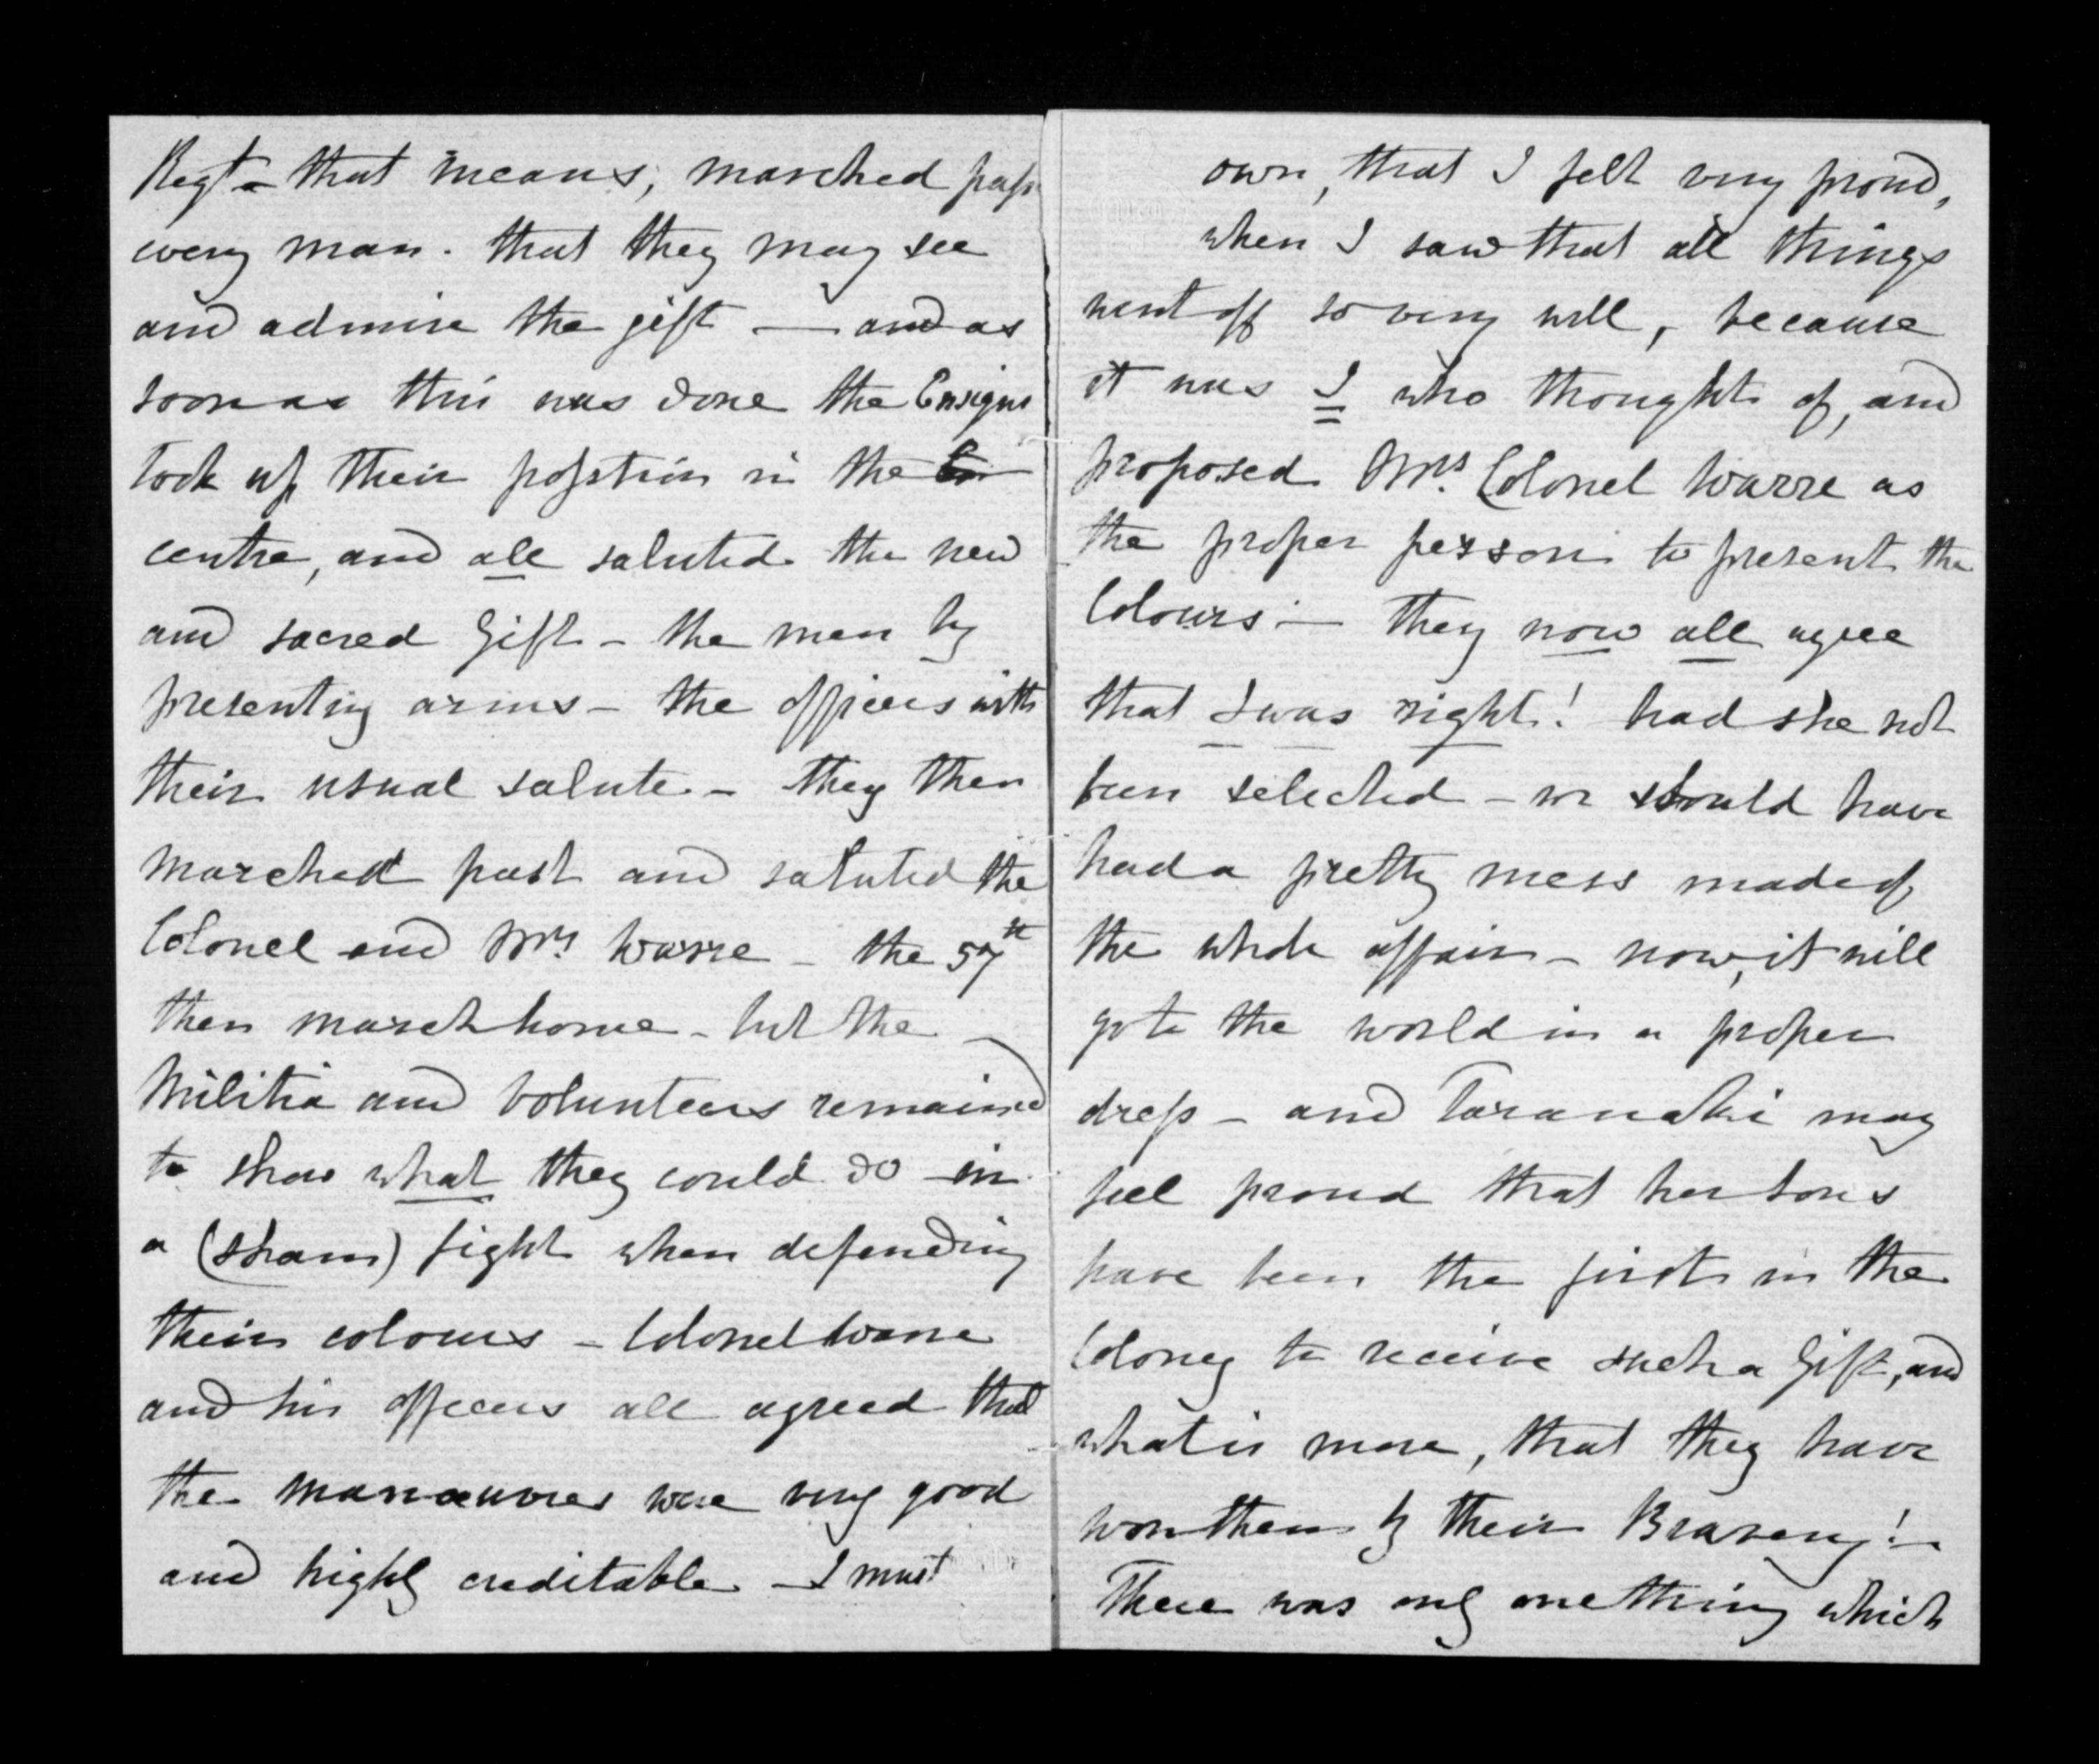 Regt - that means, marched past
every man. that they may see
and admire the gift — and as
soon as this was done the Ensigns
took up their position in the
centre, and all saluted the new
and sacred Gift - the men by
presenting arms - the officers with
their usual salute - they then
marched past and saluted the
Colonel and Mrs Warre - the 57th
then march home - but the
Militia and Volunteers remained
to show what they could do in
a (sham) fight when defending
their colours - Colonel Warre
and his officers all agreed that
the manœuvres were very good
and highly creditable - I must
own, that I felt very proud,
when I saw that all things
went off so very well, because
it was I who thought of, and
proposed Mrs. Colonel Warre as
the proper person to present the
Colours - they now all agree
that I was right! had she not
been selected - we should have
had a pretty mess made of
the whole affair - now, it will
go to the world in a proper
dress - and Taranaki may
feel proud that her sons
have been the first in the
Colony to receive such a Gift, and
what is more, that they have
won them by their Bravery! -
There was only one thing which